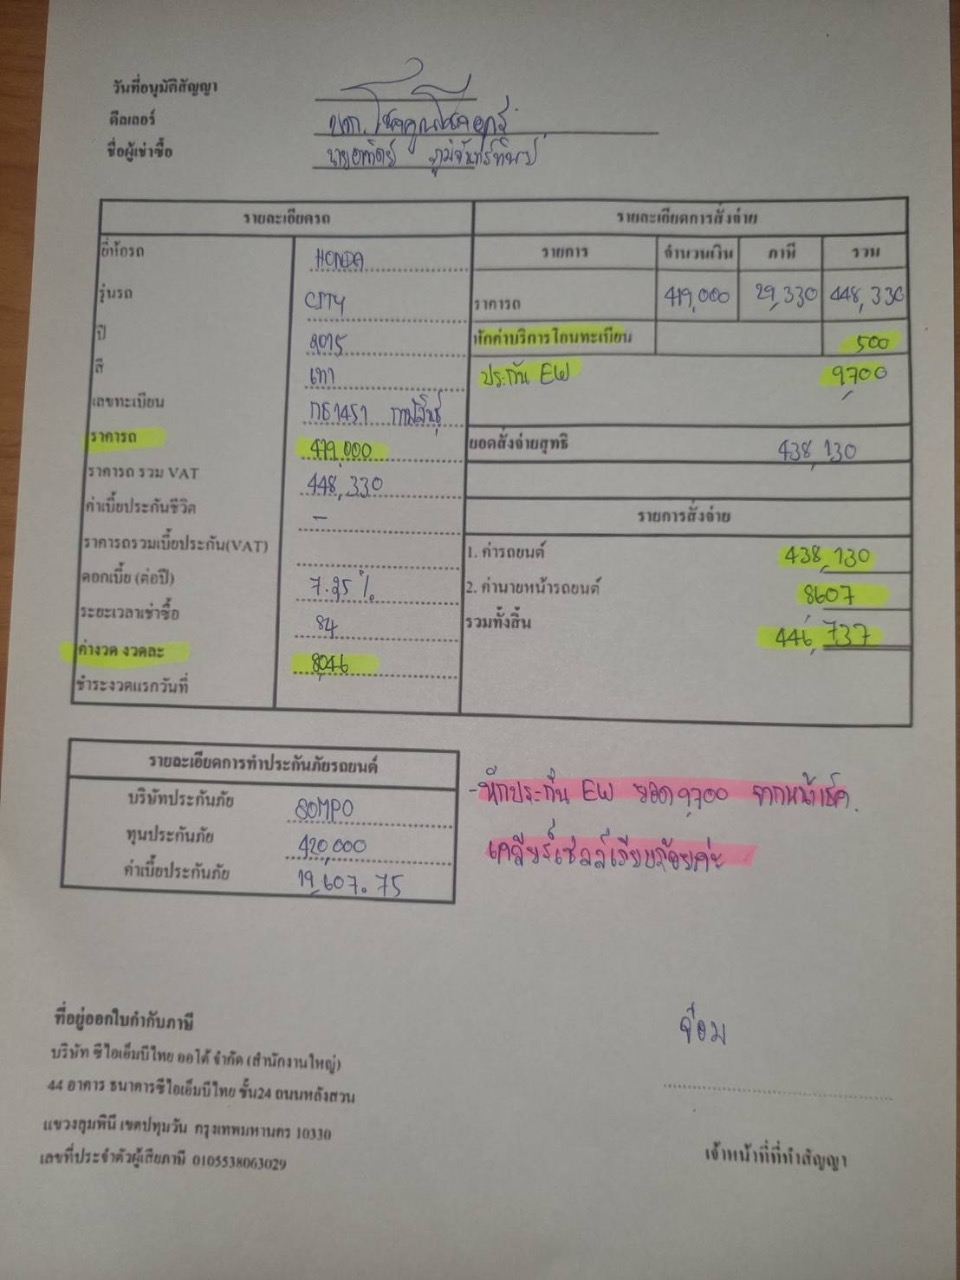 วันที่อนุมัติสัญญา
ดีลเลอร์ บจก. โชคคูณโชคออโต้
ชื่อผู้เช่าซื้อ นายอาทิตย์
รายละเอียดรถ
ยี่ห้อรถ HONDA
รุ่นรถ CITY
ปี 2015
สี เทา
เลขทะเบียน 1451 กาฬสินธุ์
ราคารถ 419,000
ราคารถ รวม VAT 448,330
ค่าเบี้ยประกันชีวิต -
ราคารถรวมเบี้ยประกัน(VAT)
ดอกเบี้ย (ต่อปี) 7.25 %
ระยะเวลาเช่าซื้อ 84
ค่างวด งวดละ 8,046
ชำระงวดแรกวันที่
รายละเอียดการสั่งจ่าย
รายการ จำนวนเงิน ภาษี รวม
ราคารถ 419,000 29,330 448,330
หักค่าบริการโอนทะเบียน 500
ประกัน EW 9,700
ยอดสั่งจ่ายสุทธิ 438,130
รายการสั่งจ่าย
1. ค่ารถยนต์ 438,130
2. ค่านายหน้ารถยนต์ 8607
รวมทั้งสิ้น 446,737
รายละเอียดการทำประกันภัยรถยนต์
บริษัทประกันภัย SOMPO
ทุนประกันภัย 420,000
ค่าเบี้ยประกันภัย 19,607.75
- หักประกัน EW ยอด 9,700 จากหน้าเช็ค.
เคลียร์เซลล์เรียบร้อยค่ะ
ที่อยู่ออกใบกำกับภาษี
บริษัท ซีไอเอ็มบีไทย ออโต้ จำกัด (สำนักงานใหญ่)
44 อาคาร ธนาคารซีไอเอ็มบีไทย ชั้น24 ถนนหลังสวน
แขวงลุมพินี เขตปทุมวัน กรุงเทพมหานคร 10330
เลขที่ประจำตัวผู้เสียภาษี 0105538063029
จ๋อม
เจ้าหน้าที่ที่ทำสัญญา